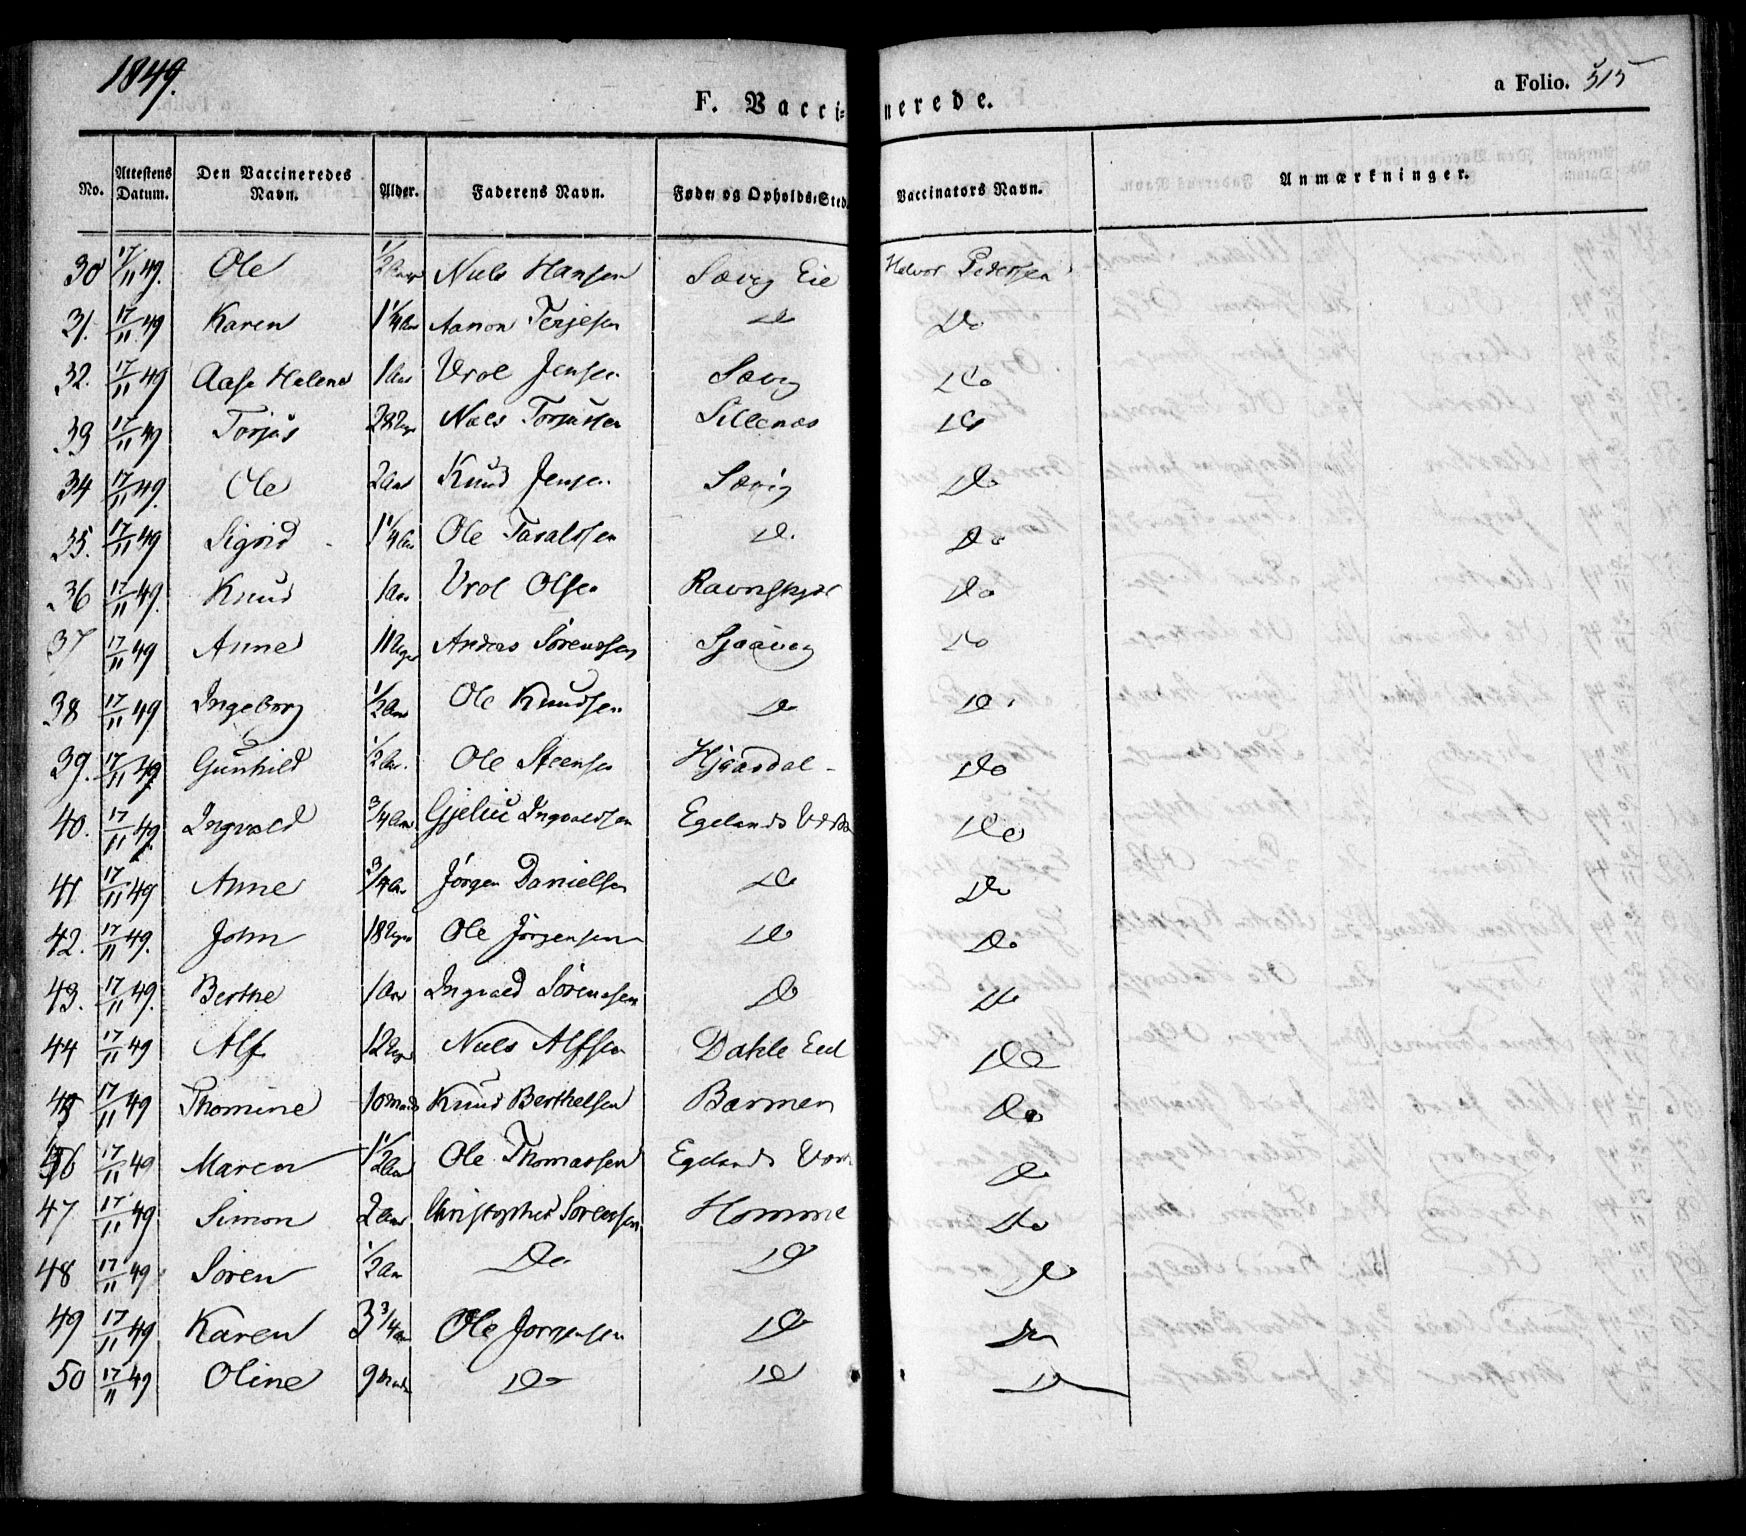 1849.
F. Vaccinerede.
a Folio. 515
No. Attestens Datum. Den Vaccineredes Navn. Alder. Faderens Navn. Føde- og Opholds-Sted. Vaccinators Navn. Anmærkninger.
30 17/11 49. Ole 1/2 Aar Niels Hansen Sævig Eie Halvor Pedersen
31. 17/11 49 Karen 1 1/4 Aar Aanon Terjesen Do Do
32. 17/11 49 Aase Helene 1 Aar Vrol Jensen Sævig Do
33 17/11 49 Torjus Niels Torjussen Sillenæs Do
34 17/11 49. Ole 2 Aar Knud Jensen Sævig Do
35. 17/11 49 Sigrid 1 1/4 Aar Ole Taralssen D. Do
36 17/11 49. Knud 1 Aar Vrol Olsen Ravneskjær Do
37 17/11 49 Anne 11 Uger Anders Sørenssen Sjaavog Do
38 17/11 49 Ingeborg 1/2 Aar Ole Knudsen Do Do
39. 17/11 49 Gunhild 1/2 Aar. Ole Steensen Hjaasdal Do
40. 17/11 49. Ingvald 3/4 Aar Gjeliu Ingvaldsen Egelands Værk Do
41 17/11 49 Anne 3/4 Aar Jørgen Danielsen Do Do
42. 17/11 49. John 18 Uger Ole Jørgensen Do Do
43. 17/11 49. Berthe 1 Aar Ingvald Sørenssen Do Do
44 17/11 49 Alf 12 Uger Niels Alfsen Dahle Eid Do
45 17/11 49 Thomine 10 Maan Knud Berthelsen Barmen Do
46 17/11 49 Maren 1 1/2 Aar Ole Thomassen Egelands Værk Do
47 17/11 49 Simon 2 Aar Christopher Sørenssen Homme Do
48 17/11 49 Søren 1/2 Aar Do Do Do
49 17/11 49 Karen 3 3/4 Aar Ole Jørgensen Do Do
50 17/11 49 Oline 9 Maan Do Do Do